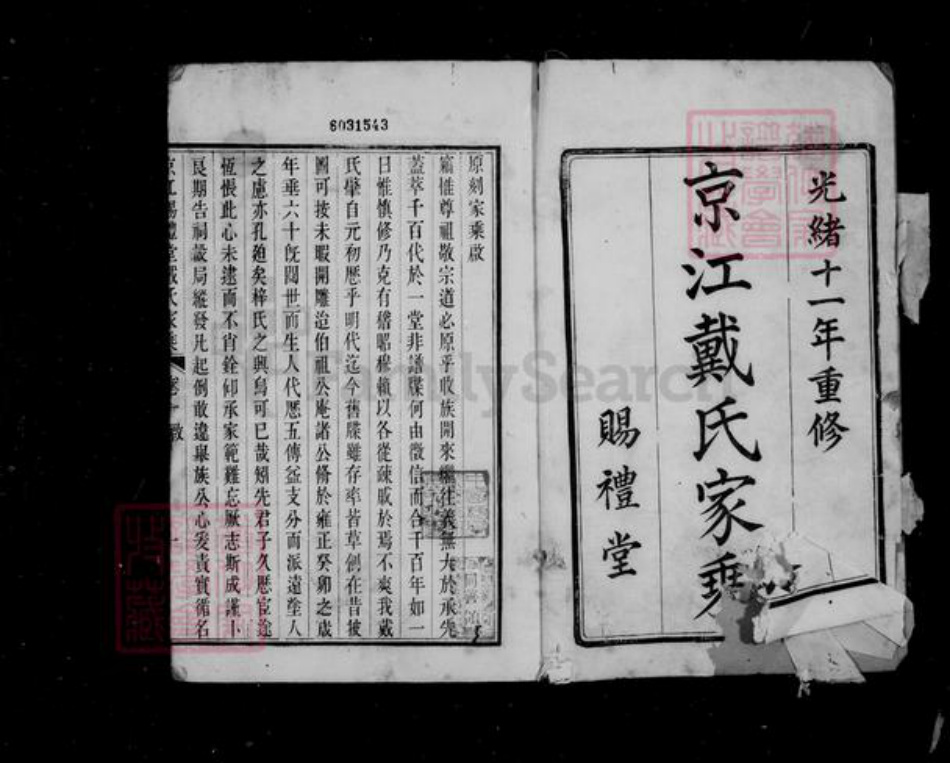 光緒十一年重修
京江戴氏家乘
賜禮堂
6031543
原刻家乘啟
竊惟尊祖敬宗道必原乎收族開來繼往義無大於承先
蓋萃千百代於一堂非譜牒何由徵信而合千百年如一
日惟慎修乃克有稽昭穆賴以各從疎戚於焉不爽我戴
氏肇自元初歷乎明代迄今舊牒雖存率皆草創在昔披
圖可按未暇開雕迨伯祖公庵諸公脩於雍正癸卯之歲
年垂六十旣閱世而生人代歷五傳益支分而派遠塋人
之慮亦孔廹矣梓氏之興烏可已哉矧先君子久歷宦途
恆悵此心未逮而不肖銓仰承家範難忘厥志斯成謹卜
良期告祠設局縱發凡起例敢違舉族公心爰責實循名
京江賜禮堂戴氏家乘 啟 一
FamilySearch